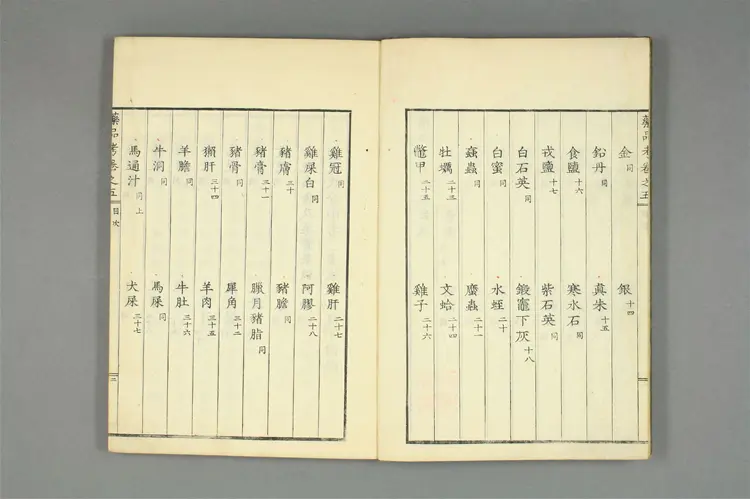 藥品考卷之五
金 同 銀 十四
鉛丹 同 真朱 十五
食鹽 十六 寒水石 同
戎鹽 十七 紫石英 同
白石英 同 鍛竈下灰 十八
白蜜 同 水蛭 二十
蝱蟲 同 䗪蟲 二十一
牡蠣 二十三 文蛤 二十四
鼈甲 二十五 雞子 二十六
雞冠 同 雞肝 二十七
雞屎白 同 阿膠 二十八
豬膚 三十 豬膽 同
豬膏 三十一 臘月豬脂 同
豬骨 同 犀角 三十二
獺肝 三十四 羊肉 三十五
羊膽 同 牛肚 三十六
牛洞 同 馬屎 同
馬通汁 同上 犬屎 三十七
藥品考卷之五 目次 二